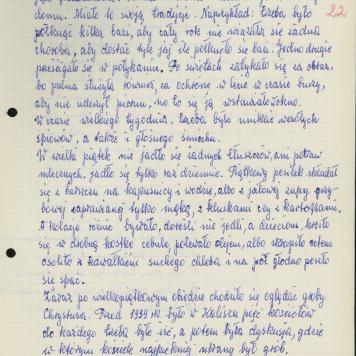 22
domu. Miało to swoją tradycję. Naprzykład: trzeba było
połknąć kilka bazi, aby cały rok nie imała się żadna
choroba, aby dostać tyle jaj ile połknęło się bazi. Jedno drugie
prześcigało się w połykaniu. Po świętach zatykało się za obraz,
bo palma służyła również, za ochronę w lecie w czasie burzy,
aby nie uderzył piorun, no to się ją
W czasie wielkiego tygodnia trzeba było unikać wesołych
śpiewów, a także i głośnego śmiechu.
W wielki piątek nie jadło się żadnych tłuszczów, ani potraw
mlecznych, jadło się tylko raz dziennie. Piątkowy posiłek składał
się z barszczu na kapuśnicy i wodzie, albo z jałowej zupy grzy-
bowej zaprawianej tylko mąką, z kluskami czy z kartoflami.
A kolacje różnie bywało, dorośli nie jedli, a dzieciom, kroiło
się w drobną kostkę cebulę, polewało olejem, albo skropiło octem
osoliło z kawałkiem suchego chleba i na pół głodno poszło
się spać.
Zaraz po wielkopiątkowym obiedzie chodziło się oglądać groby
Chrystusa. Przed 1939 r. było w Kaliszu pięć kościołów
do każdego trzeba było iść, a potem była dyskusja, gdzie
w którym kościele najpiękniej ubrany był grób.